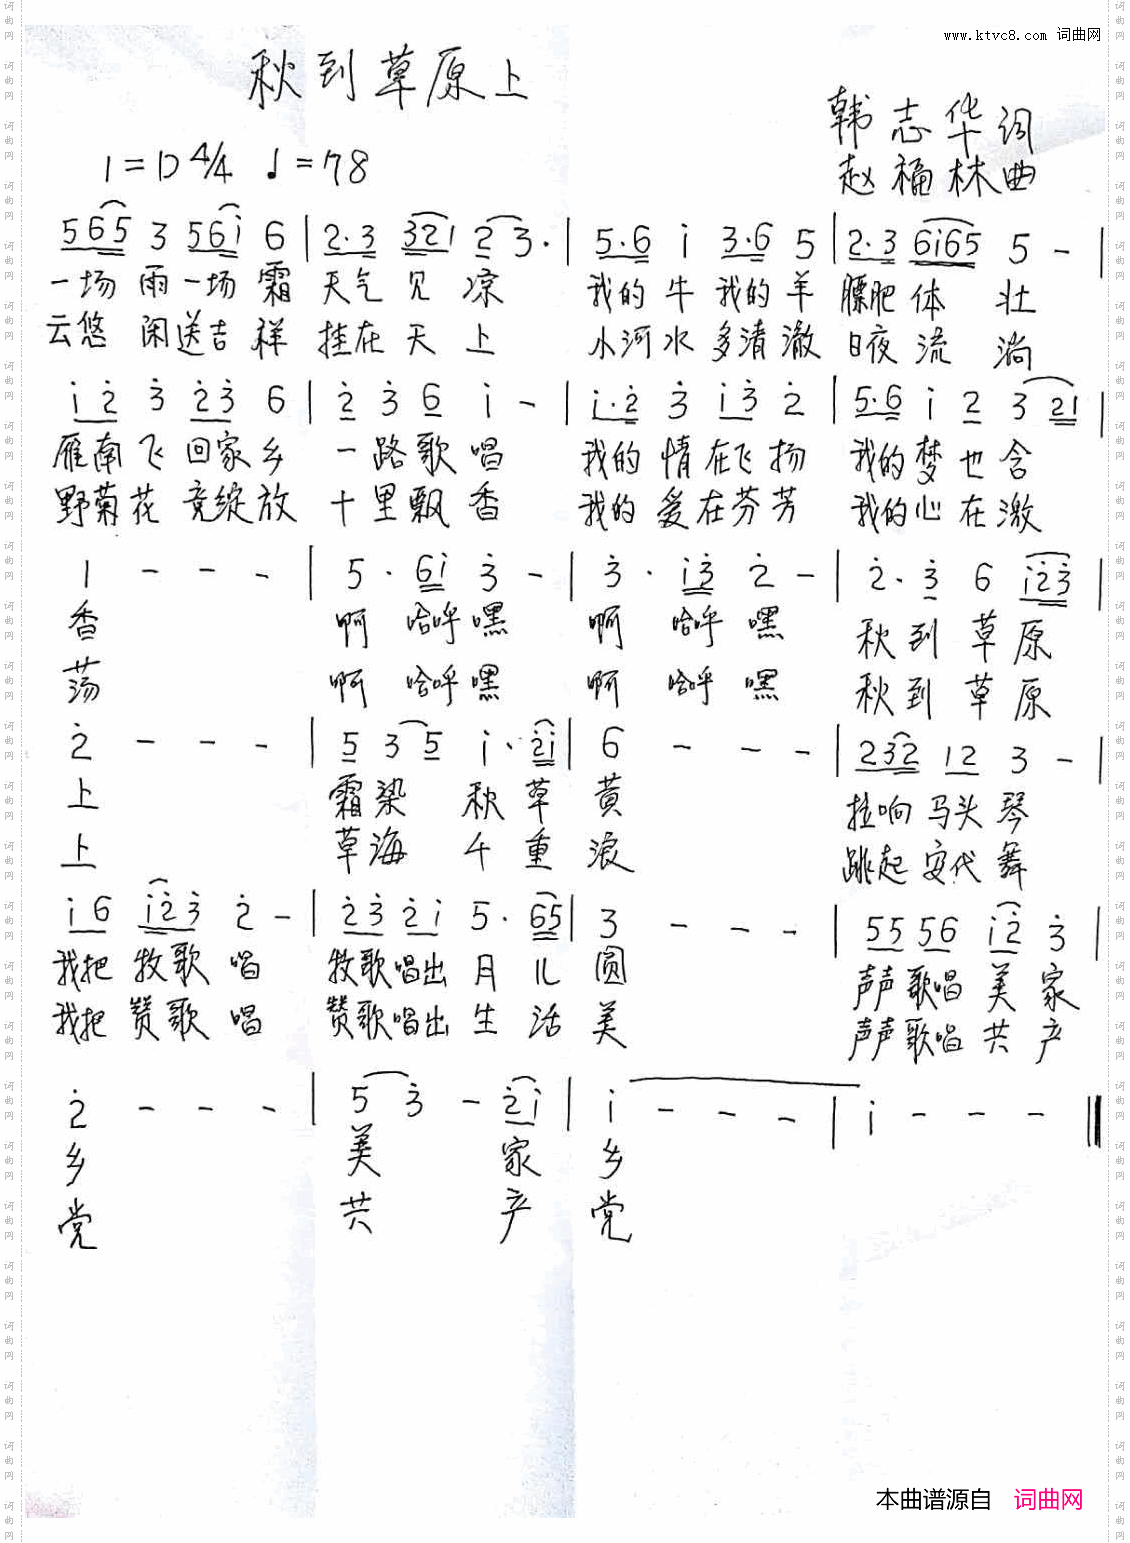 www.ktvc8.com 词曲网
秋到草原上
韩志华词
1=D 4/4 ♩=78
赵福林曲
5 6 5 3 5 6 i 6 | 2· 3 3 2 1 2 3· | 5·6 i 3·6 5 | 2·3 6i65 5 - |
一场 雨 一场 霜 天气 见 凉 我的 牛 我的 羊 膘肥 体 壮
云悠 闲 送吉 祥 挂在 天 上 小河 水 多清 澈 日夜 流 淌
i 2 3 2 3 6 | 2 3 6 i - | i·2 3 i 3 2 | 5·6 i 2 3 2i |
雁南 飞 回家 乡 一 路 歌 唱 我的 情 在飞 扬 我的 梦 也 含
野菊 花 竞绽 放 十 里 飘 香 我的 爱 在芬 芳 我的 心 在 激
1 - - - | 5· 6i 3 - | 3· i3 2 - | 2· 3 6 i23 |
香 啊 哈呼 嘿 啊 哈呼 嘿 秋 到 草 原
荡 啊 哈呼 嘿 啊 哈呼 嘿 秋 到 草 原
2 - - - | 5 3 5 i· 2i | 6 - - - | 232 12 3 - |
上 霜 染 秋 草 黄 拉响 马头 琴
上 草 海 千 重 浪 跳起 安代 舞
i6 i23 2 - | 23 2i 5· 65 | 3 - - - | 55 56 i2 3 |
我把 牧歌 唱 牧歌 唱出 月 儿 圆 声声 歌唱 美 家
我把 赞歌 唱 赞歌 唱出 生 活 美 声声 歌唱 共 产
2 - - - | 5 3 - 2i | i - - - | i - - - ‖
乡 美 家 乡
党 共 产 党
本曲谱源自 词曲网